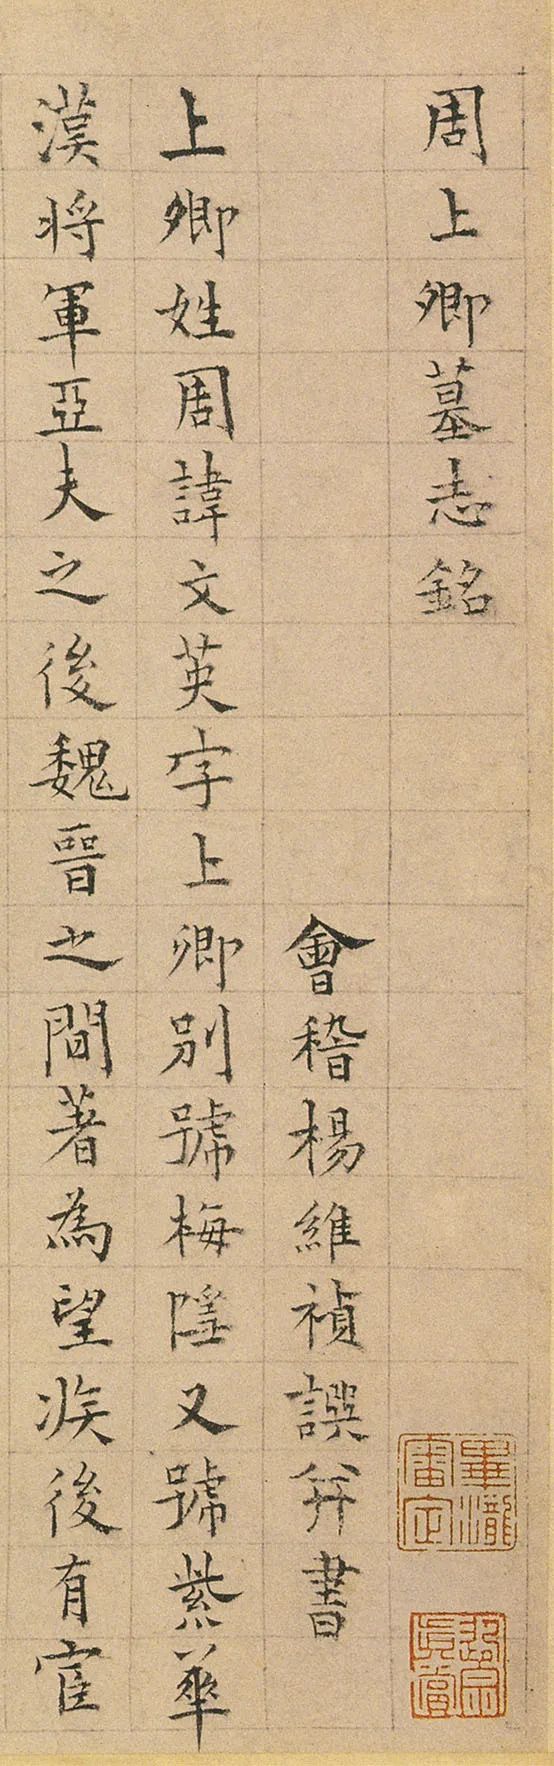 周上卿墓志銘
會稽楊維禎譔并書
上卿姓周諱文英字上卿別號梅隱又號紫華
漢將軍亞夫之後魏晉之間著為望族後有宦
畢瀧審定